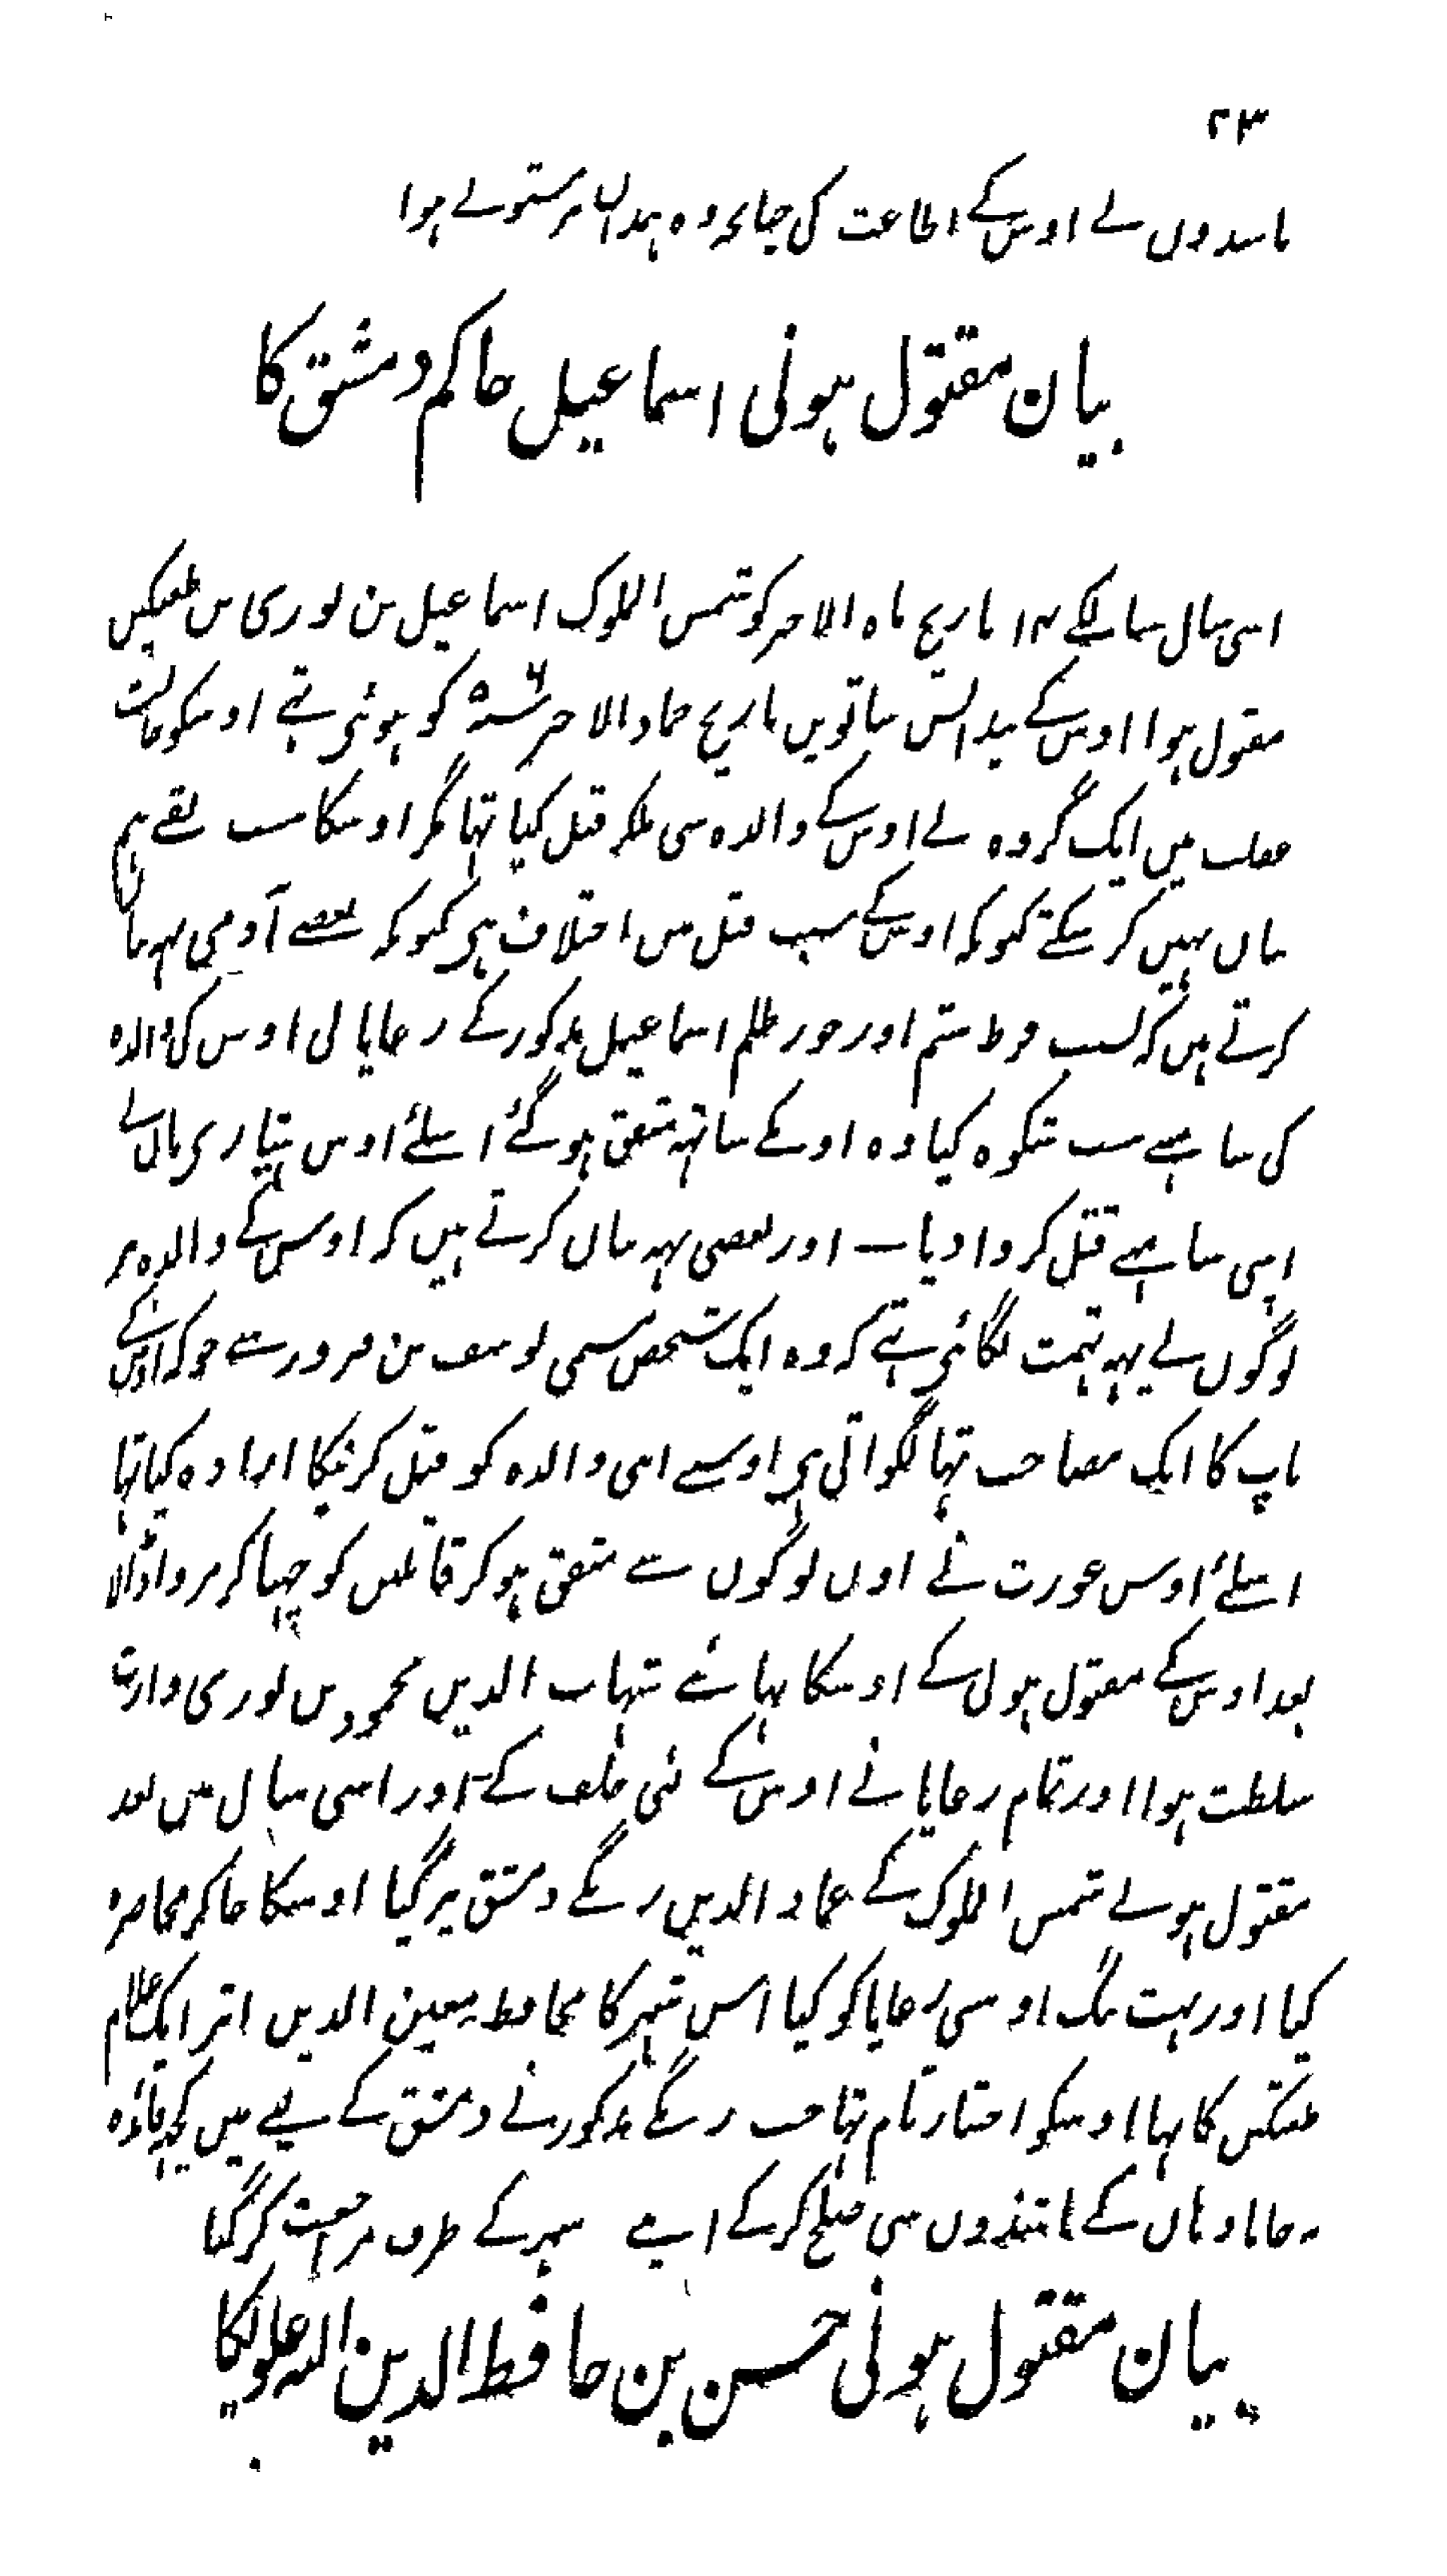 ٢٣
باشندوں نے اوس کے اطاعت کی چنانچہ وہ ہمدان پر مستولے ہوا
بیان مقتول ہونی اسماعیل حاکم دمشق کا
اسی سال کے ١٤ تاریخ ماہ الاخر کو شمس الملوک اسماعیل بن بوری بن طغتکین
مقتول ہوا اوس کے پیدایش ساتویں تاریخ جماد الاخر کو ہوئی تہے اوسکو حالت
غفلت میں ایک گروہ نے اوس کے والدہ سی ملکر قتل کیا تہا مگر اوسکا سبب یقے ہم
بیان نہیں کر سکتے کیونکہ اوس کے سبب قتل میں اختلاف ہی کیونکہ بعضے آدمی یہہ بیان
کرتے ہیں کہ بسبب فرط ستم اور جور ظلم اسماعیل مذکور کے رعایا نی اوس کی والدہ
کی سامہے سب شکوہ کیا وہ اونکے ساتہہ متفق ہو گئے اسلئے اوس بیتاری مان نے
اپنی سامہے قتل کروا دیا ــ اور بعضی یہہ بیان کرتے ہیں کہ اوس کے والدہ پر
لوگوں نے یہہ تہمت لگائی تہے کہ وہ ایک شخص مسمی یوسف بن فیروز سے جو کہ اوس کے
باپ کا ایک مصاحب تہا لگواتی ہی اوسے اپنی والدہ کو قتل کرنیکا ارادہ کیا تہا
اسلئے اوس عورت نے اون لوگوں سے متفق ہو کر قاتلین کو چہپا کر مروا ڈالا
بعد اوس کے مقتول ہونی کے اوسکا بہائے شہاب الدین محمود بن بوری وارث
سلطنت ہوا اور تمام رعایا نے اوس کے لئی حلف کے اور اسی سال میں بعد
مقتول ہونے شمس الملوک کے عماد الدین زنگے دمشق پر گیا اوسکا جا کر محاصرہ
کیا اور بہت تنگ اوسی رعایا کو کیا اس شہر کا محافظ معین الدین اتز ایک غلام
طغتکین کا تہا اوسکو اختیار تام تہا جب زنگے مذکور نے دمشق کے لیے میں کچہہ فائدہ
نہ جانا وہاں کے باشندوں سی صلح کر کے اپنے شہر کے طرف مراجعت کر گیا
بیان مقتول ہونی حسن بن حافظ الدین اللہ علویکا